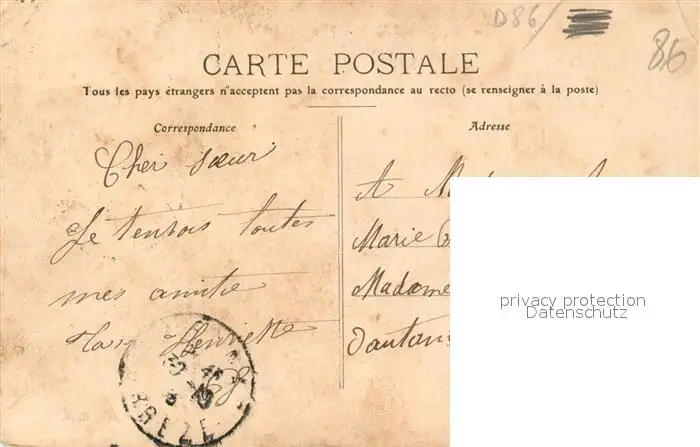 D86/
86
CARTE POSTALE
Tous les pays étrangers n'acceptent pas la correspondance au recto (se renseigner à la poste)
Correspondance
Cher sœur
Je tenvois toutes
mes amitie
Henriette
BREZE
Adresse
A
Marie
Madame
privacy protection
Datenschutz